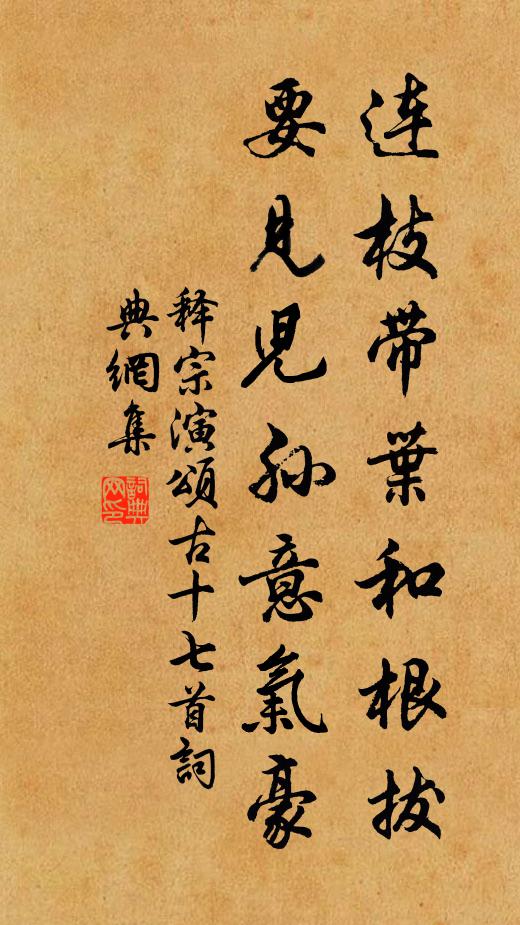 連枝帶葉和根拔
要見兒孫意氣豪
释宗演頌古十七首詞
典網集
詞典
网印